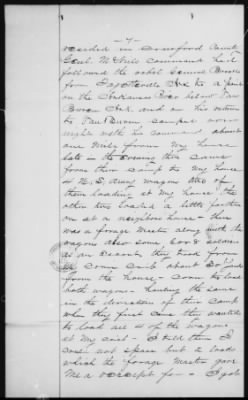 - 7 -
resided in Crawford County
Genl. McNeils command had
followed the rebel General Brooks
from Fayetteville Ark to a point
on the Arkansas River below Van
Buren Ark. and on his return
to Van Buren camped over
night with his command about
one mile from my house
late in the evening there came
from their camp to my house
4 U.S. Army wagons two of
them loading at my house, the
other two loaded a little farther
on at a neighbors house - there
was a forage master along with the
wagons also some soldiers
as an escort, they took from
me some corn about
from the house, soon to load
both wagons - hauling the same
in the direction of their camp
when they first came they wanted
to load all 4 of the wagons
at my crib - I told them I
could not spare but 2 loads
which the forage master gave
me a receipt for - I got